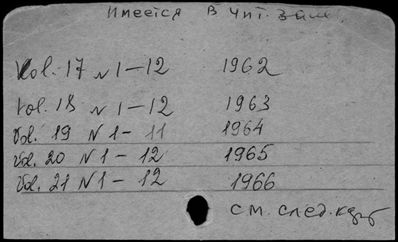 Имеется в чит. зале
Vol. 17 N 1-12 1962
Vol. 18 N 1-12 1963
Vol. 19 N 1-11 1964
Vol. 20 N 1-12 1965
Vol. 21 N 1-12 1966
см. след.